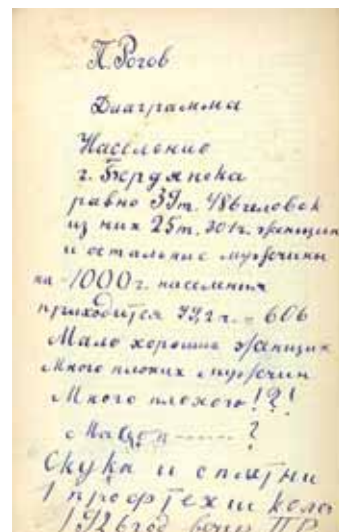 П. Рогов
Диаграмма
Население
г. Бердянска
равно 39т. 486 человек
из них 25т. 301ч. женщин
и остальные мужчины
на 1000г. населения
приходится = 606
Мало хороших женщин
Много плохих мужчин
Много плохого!?!
?
Скука и сплетни
1 профтехшкола
1926 год